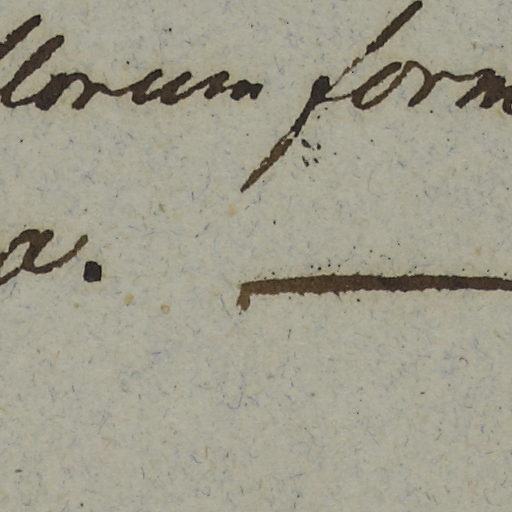 llorum form
a. —